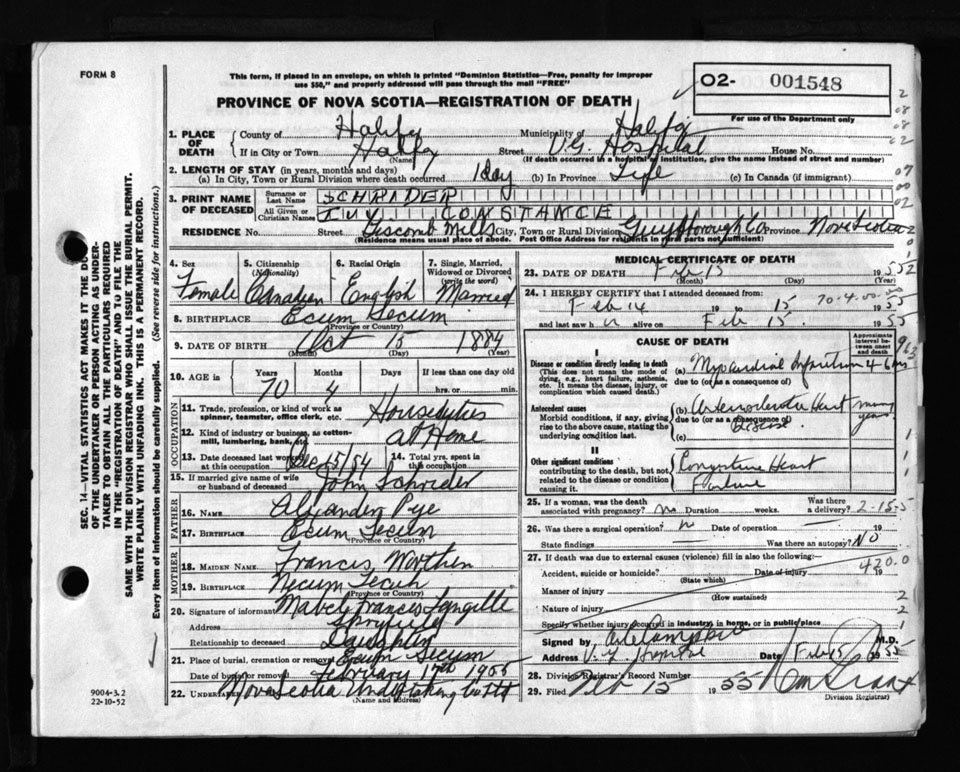 FORM 8
This form, if placed in an envelope, on which is printed "Dominion Statistics—Free, penalty for improper
use $50," and properly addressed will pass through the mail "FREE"
PROVINCE OF NOVA SCOTIA—REGISTRATION OF DEATH
O2- 001548
For use of the Department only
SEC. 14—VITAL STATISTICS ACT MAKES IT THE DUTY
OF THE UNDERTAKER OR PERSON ACTING AS UNDER-
TAKER TO OBTAIN ALL THE PARTICULARS REQUIRED
IN THE "REGISTRATION OF DEATH" AND TO FILE THE
SAME WITH THE DIVISION REGISTRAR WHO SHALL ISSUE THE BURIAL PERMIT.
WRITE PLAINLY WITH UNFADING INK. THIS IS A PERMANENT RECORD.
Every item of information should be carefully supplied. (See reverse side for instructions.)
1. PLACE OF DEATH
County of Halifax Municipality of Halifax
If in City or Town Halifax Street V.G. Hospital House No.
(Name) (If death occurred in a hospital or institution, give the name instead of street and number)
2. LENGTH OF STAY (in years, months and days)
(a) In City, Town or Rural Division where death occurred 1 day (b) In Province Life (c) In Canada (if immigrant)
3. PRINT NAME OF DECEASED
Surname or Last Name SCHRADER
All Given or Christian Names IVY CONSTANCE
RESIDENCE No. Street Liscomb Mills City, Town or Rural Division Guysborough Co Province Nova Scotia
(Residence means usual place of abode. Post Office Address for residents in rural parts not sufficient)
4. Sex Female
5. Citizenship (Nationality) Canadian
6. Racial Origin English
7. Single, Married, Widowed or Divorced (write the word) Married
8. BIRTHPLACE Ecum Secum
(Province or Country)
9. DATE OF BIRTH Oct 15 1884
(Month) (Day) (Year)
10. AGE in Years Months Days If less than one day old
70 4 1 hrs. or min.
OCCUPATION
11. Trade, profession, or kind of work as
spinner, teamster, office clerk, etc. Houseduties
12. Kind of industry or business, as cotton-
mill, lumbering, bank, etc. at Home
13. Date deceased last worked at this occupation Dec 15/54
14. Total yrs. spent in this occupation
15. If married give name of wife
or husband of deceased John Schrader
FATHER
16. NAME Alexander Pye
17. BIRTHPLACE Ecum Secum
(Province or Country)
MOTHER
18. MAIDEN NAME Francis
19. BIRTHPLACE Necum Secum
(Province or Country)
20. Signature of informant Mabel Frances Langille
Address Spryfield
Relationship to deceased Daughter
21. Place of burial, cremation or removal Ecum Secum
Date of burial or removal February 17th 1955
22. Undertaker Nova Scotia Undertaking Co Ltd
(Name and Address)
9004-3.2
22-10-52
MEDICAL CERTIFICATE OF DEATH
23. DATE OF DEATH Feb 15 1955
(Month) (Day)
24. I HEREBY CERTIFY that I attended deceased from:
Feb 14 19 to 15 1955
and last saw h alive on Feb 15 1955
70-4-00-00
CAUSE OF DEATH
Approximate interval between onset and death
I
Disease or condition directly leading to death
(This does not mean the mode of
dying, e.g., heart failure, asthenia,
etc. It means the disease, injury, or
complication which caused death.)
(a) Myocardial Infarction 46 hrs
due to (or as a consequence of)
Antecedent causes
Morbid conditions, if any, giving
rise to the above cause, stating the
underlying condition last.
(b) Arteriosclerotic Heart Disease many years
due to (or as a consequence of)
(c)
II
Other significant conditions
contributing to the death, but not
related to the disease or condition
causing it.
Congestive Heart
Failure
25. If a woman, was the death Was there
associated with pregnancy? no Duration weeks. a delivery?
2-15-5
26. Was there a surgical operation? Date of operation 19
State findings Was there an autopsy? No
27. If death was due to external causes (violence) fill in also the following:
420.0
Accident, suicide or homicide? Date of injury 19
(State which)
Manner of injury
(How sustained)
Nature of injury
Specify whether injury occurred in industry, in home, or in public place
Signed by M.D.
Address V.G. Hospital Date Feb 15 1955
28. Division Registrar's Record Number
29. Filed Feb 15 1955
Division Registrar)